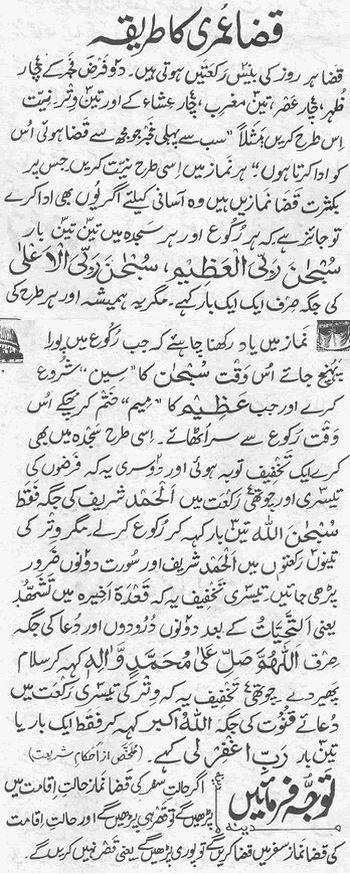 قضا عُمری کا طریقہ
قضا ہر روز کی بیس رکعتیں ہوتی ہیں۔ دو فرض فجر کے چار
ظہر، چار عصر، تین مغرب، چار عشاء کے اور تین وتر۔ نیت
اس طرح کریں؛ مثلاً "سب سے پہلی فجر جو مجھ سے قضا ہوئی اُس
کو ادا کرتا ہوں" ہر نماز میں اِسی طرح نیت کریں جس پر
بکثرت قضا نمازیں ہیں وہ آسانی کیلئے اگر یوں بھی ادا کرے
تو جائز ہے کہ ہر رکوع اور ہر سجدہ میں تین تین بار
سُبْحٰنَ رَبِّیَ الْعَظِیْم، سُبْحٰنَ رَبِّیَ الْاَعْلٰی
کی جگہ صرف ایک ایک بار کہے۔ مگر یہ ہمیشہ اور ہر طرح کی
نماز میں یاد رکھنا چاہئے کہ جب رکوع میں پورا
پہنچ جائے اُس وقت سُبْحٰنَ کا "سین" شروع
کرے اور جب عَظِیْم کا "میم" ختم کر چکے اُس
وقت رکوع سے سر اٹھائے۔ اِسی طرح سجدہ میں بھی
کرے ایک تخفیف تو یہ ہوئی اور دوسری یہ کہ فرضوں کی
تیسری اور چوتھی رکعت میں اَلْحَمْد شریف کی جگہ فقط
سُبْحٰنَ اللہ تین بار کہہ کر رکوع کر لے۔ مگر وتر کی
تینوں رکعتوں میں اَلْحَمْد شریف اور سورت دونوں ضرور
پڑھی جائیں۔ تیسری تخفیف یہ کہ قعدۂ اخیرہ میں تشھّد
یعنی اَلتَّحِیَّات کے بعد دونوں دُرودوں اور دعا کی جگہ
صرف اَللّٰھُمَّ صَلِّ عَلٰی مُحَمَّدٍ وَّاٰلِہٖ کہہ کر سلام
پھیر دے۔ چوتھی تخفیف یہ کہ وتر کی تیسری رکعت میں
دعائے قنوت کی جگہ اَللہُ اکبر کہہ کر فقط ایک بار یا
تین بار رَبِّ اغْفِرْ لِی کہے۔ (ملخّص از احکامِ شریعت)
توجّہ فرمائیں
اگر حالتِ سفر کی قضا نماز حالتِ اقامت میں
پڑھیں گے تو قصر ہی پڑھیں گے اور حالتِ اقامت
کی قضا نماز سفر میں قضا کریں گے تو پوری پڑھیں گے یعنی قصر نہیں کریں گے۔